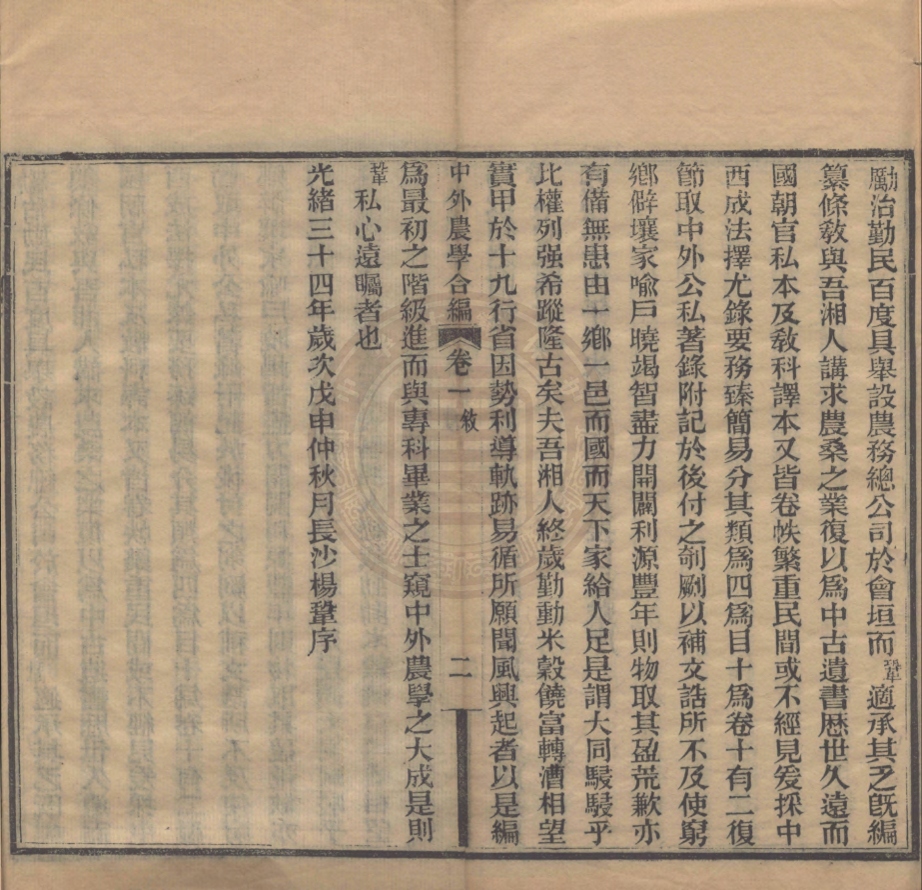 勵治勤民百度具舉設農務總公司於會垣而鞏適承其乏旣編
纂條敎與吾湘人講求農桑之業復以爲中古遺書歷世久遠而
國朝官私本及敎科譯本又皆卷帙繁重民間或不經見爰採中
西成法擇尤錄要務臻簡易分其類爲四爲目十爲卷十有二復
節取中外公私著錄附記於後付之剞劂以補文誥所不及使窮
鄉僻壤家喻戶曉竭智盡力開闢利源豐年則物取其盈荒歉亦
有備無患由一鄉一邑而國而天下家給人足是謂大同駸駸乎
比權列强希蹤隆古矣夫吾湘人終歲勤動米穀饒富轉漕相望
實甲於十九行省因勢利導軌跡易循所願聞風興起者以是編
中外農學合編 卷一 敘 二
爲最初之階級進而與專科畢業之士窺中外農學之大成是則
鞏私心遠矚者也
光緒三十四年歲次戊申仲秋月長沙楊鞏序